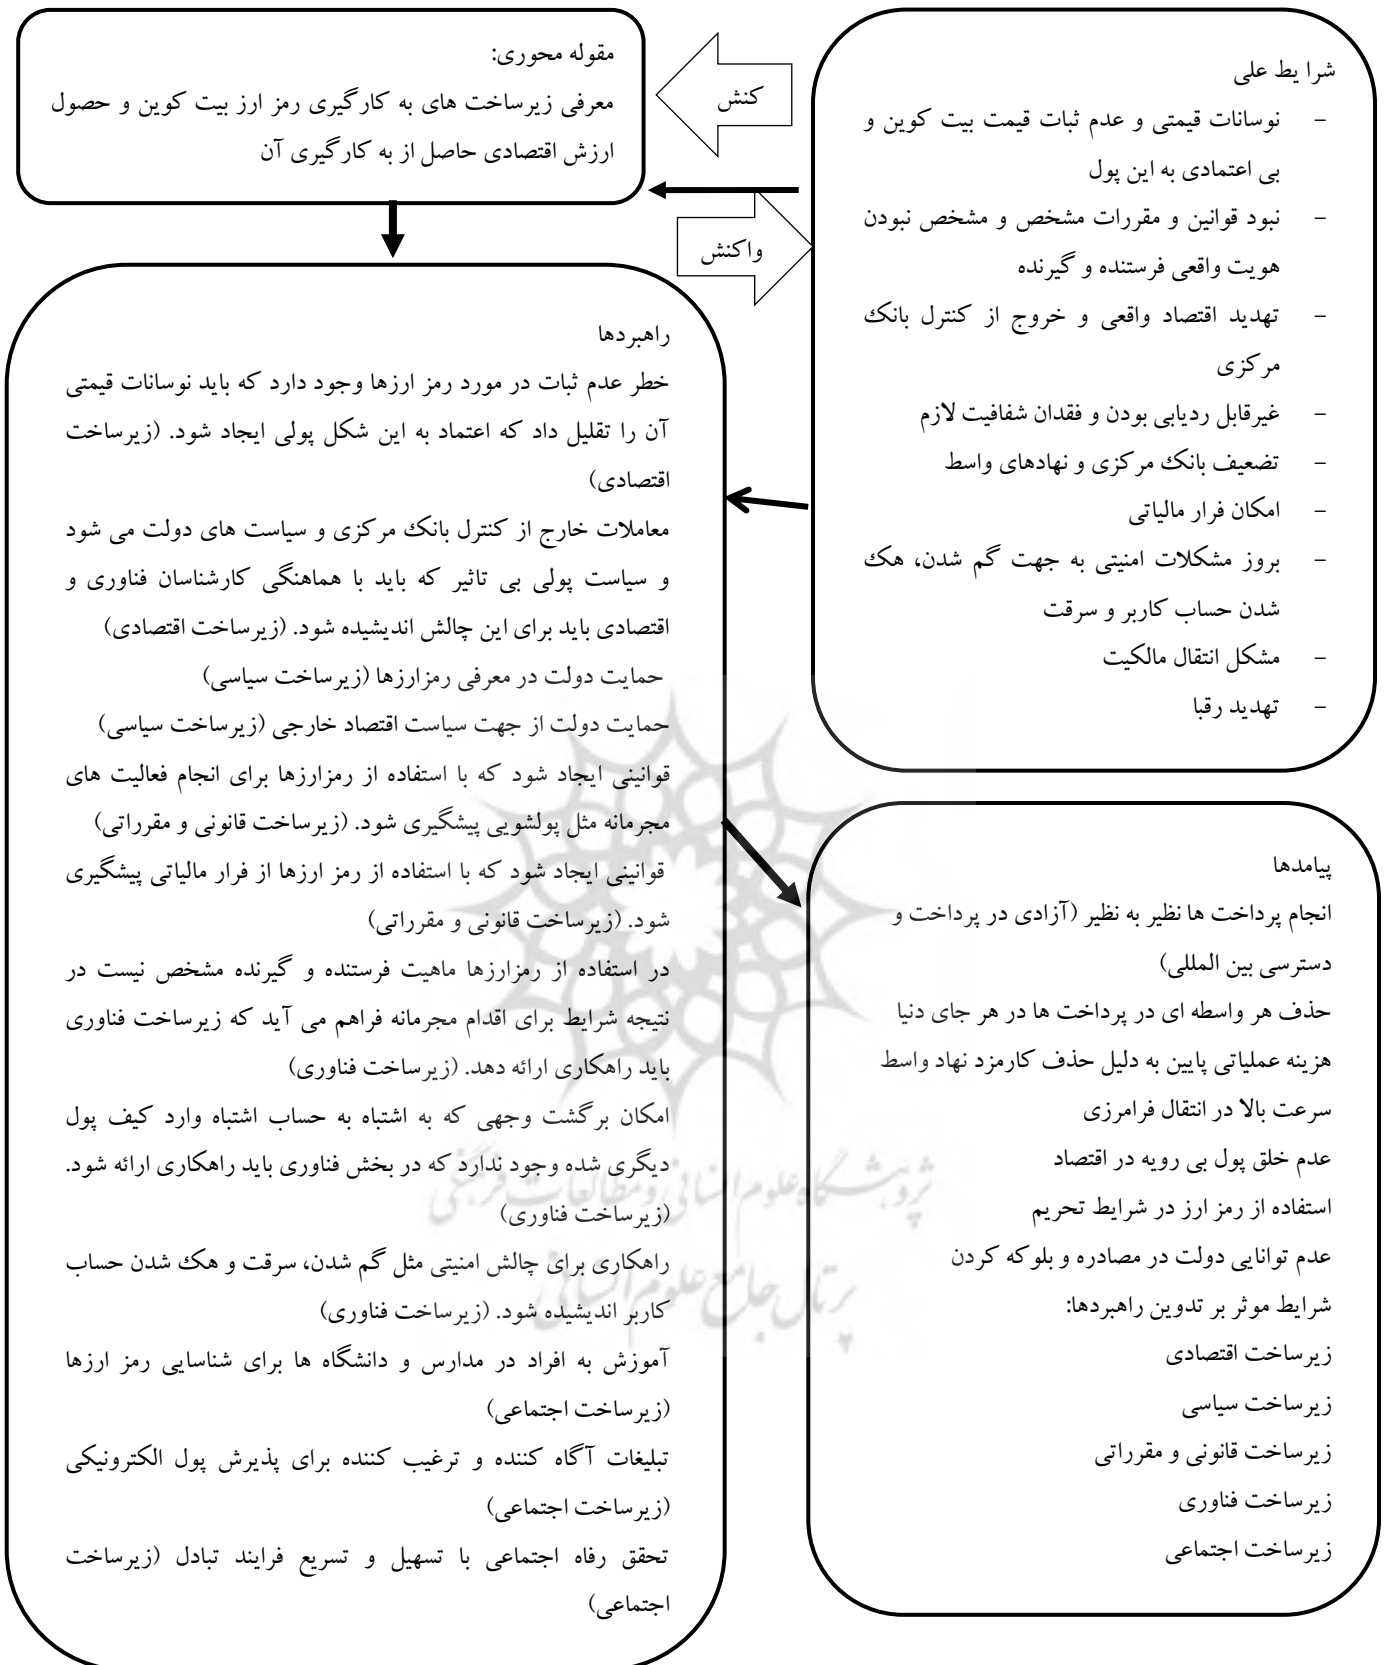 شرا یط علی
– نوسانات قیمتی و عدم ثبات قیمت بیت کوین و
بی اعتمادی به این پول
– نبود قوانین و مقررات مشخص و مشخص نبودن
هویت واقعی فرستنده و گیرنده
– تهدید اقتصاد واقعی و خروج از کنترل بانک
مرکزی
– غیرقابل ردیابی بودن و فقدان شفافیت لازم
– تضعیف بانک مرکزی و نهادهای واسط
– امکان فرار مالیاتی
– بروز مشکلات امنیتی به جهت گم شدن، هک
شدن حساب کاربر و سرقت
– مشکل انتقال مالکیت
– تهدید رقبا
کنش
واکنش
مقوله محوری:
معرفی زیرساخت های به کارگیری رمز ارز بیت کوین و حصول
ارزش اقتصادی حاصل از به کارگیری آن
راهبردها
خطر عدم ثبات در مورد رمز ارزها وجود دارد که باید نوسانات قیمتی
آن را تقلیل داد که اعتماد به این شکل پولی ایجاد شود. (زیرساخت
اقتصادی)
معاملات خارج از کنترل بانک مرکزی و سیاست های دولت می شود
و سیاست پولی بی تاثیر که باید با هماهنگی کارشناسان فناوری و
اقتصادی باید برای این چالش اندیشیده شود. (زیرساخت اقتصادی)
حمایت دولت در معرفی رمزارزها (زیرساخت سیاسی)
حمایت دولت از جهت سیاست اقتصاد خارجی (زیرساخت سیاسی)
قوانینی ایجاد شود که با استفاده از رمزارزها برای انجام فعالیت های
مجرمانه مثل پولشویی پیشگیری شود. (زیرساخت قانونی و مقرراتی)
قوانینی ایجاد شود که با استفاده از رمز ارزها از فرار مالیاتی پیشگیری
شود. (زیرساخت قانونی و مقرراتی)
در استفاده از رمزارزها ماهیت فرستنده و گیرنده مشخص نیست در
نتیجه شرایط برای اقدام مجرمانه فراهم می آید که زیرساخت فناوری
باید راهکاری ارائه دهد. (زیرساخت فناوری)
امکان برگشت وجهی که به اشتباه به حساب اشتباه وارد کیف پول
دیگری شده وجود ندارد که در بخش فناوری باید راهکاری ارائه شود.
(زیرساخت فناوری)
راهکاری برای چالش امنیتی مثل گم شدن، سرقت و هک شدن حساب
کاربر اندیشیده شود. (زیرساخت فناوری)
آموزش به افراد در مدارس و دانشگاه ها برای شناسایی رمز ارزها
(زیرساخت اجتماعی)
تبلیغات آگاه کننده و ترغیب کننده برای پذیرش پول الکترونیکی
(زیرساخت اجتماعی)
تحقق رفاه اجتماعی با تسهیل و تسریع فرایند تبادل (زیرساخت
اجتماعی)
پیامدها
انجام پرداخت ها نظیر به نظیر (آزادی در پرداخت و
دسترسی بین المللی)
حذف هر واسطه ای در پرداخت ها در هر جای دنیا
هزینه عملیاتی پایین به دلیل حذف کارمزد نهاد واسط
سرعت بالا در انتقال فرامرزی
عدم خلق پول بی رویه در اقتصاد
استفاده از رمز ارز در شرایط تحریم
عدم توانایی دولت در مصادره و بلوکه کردن
شرایط موثر بر تدوین راهبردها:
زیرساخت اقتصادی
زیرساخت سیاسی
زیرساخت قانونی و مقرراتی
زیرساخت فناوری
زیرساخت اجتماعی
پژوهشگاه علوم انسانی و مطالعات فرهنگی
پرتال جامع علوم انسانی